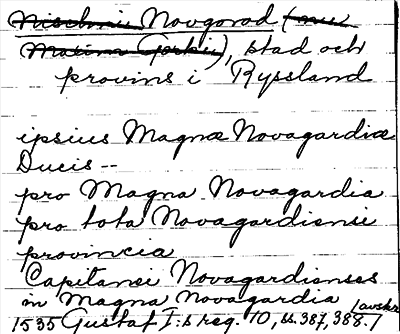 Nischnii Novgorod (nu
Maxim Gorkii), stad och
provins i Ryssland
ipsius Magnæ Novagardiæ
Ducis --
pro Magna Novagardia
pro tota Novagardiensi
provincia
Capitanei Novagardienses
in Magna Novagardia (avskr.
1535 Gustaf I:s reg. 10, ss. 387, 388.)